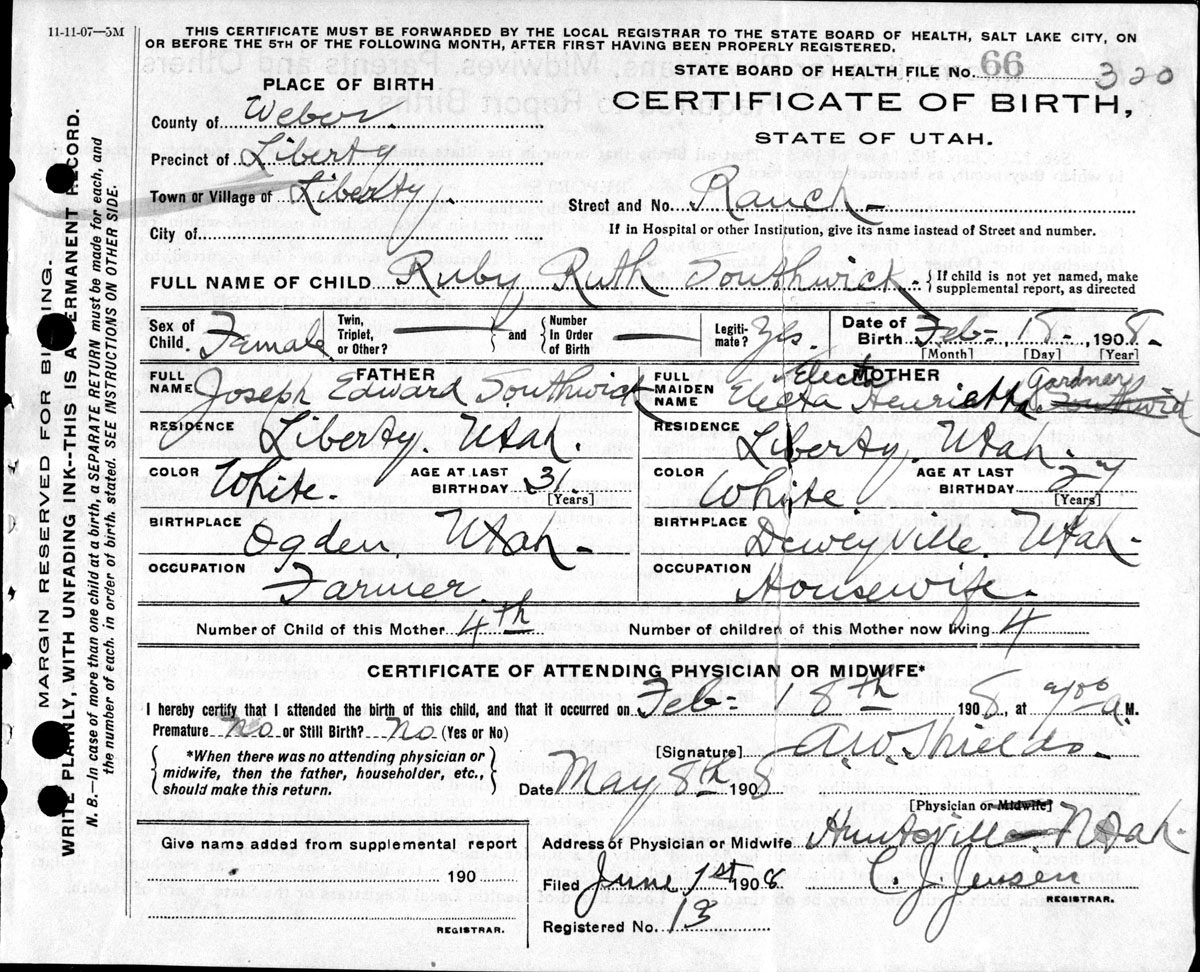 11-11-07—5M
THIS CERTIFICATE MUST BE FORWARDED BY THE LOCAL REGISTRAR TO THE STATE BOARD OF HEALTH, SALT LAKE CITY, ON
OR BEFORE THE 5TH OF THE FOLLOWING MONTH, AFTER FIRST HAVING BEEN PROPERLY REGISTERED.
STATE BOARD OF HEALTH FILE NO. 66 320
PLACE OF BIRTH
CERTIFICATE OF BIRTH,
STATE OF UTAH.
County of Weber.
Precinct of Liberty
Town or Village of Liberty.
Street and No. Ranch -
City of
If in Hospital or other Institution, give its name instead of Street and number.
FULL NAME OF CHILD Ruby Ruth Southwick - { If child is not yet named, make
supplemental report, as directed
Sex of Child. Female
Twin, Triplet, or Other? — and { Number In Order of Birth —
Legiti-mate? Yes.
Date of Birth Feb - 18 -, 1908.
[Month] [Day] [Year]
FATHER
FULL NAME Joseph Edward Southwick
RESIDENCE Liberty. Utah.
COLOR White.
AGE AT LAST BIRTHDAY 31.
[Years]
BIRTHPLACE Ogden. Utah -
OCCUPATION Farmer.
MOTHER
FULL MAIDEN NAME Electa Electa Henrietta Gardner Southwick
RESIDENCE Liberty. Utah.
COLOR White.
AGE AT LAST BIRTHDAY 27
[Years]
BIRTHPLACE Deweyville. Utah -
OCCUPATION Housewife.
Number of Child of this Mother 4th
Number of children of this Mother now living 4
CERTIFICATE OF ATTENDING PHYSICIAN OR MIDWIFE*
I hereby certify that I attended the birth of this child, and that it occurred on Feb - 18th 1908, at 9/00 a. M.
Premature No or Still Birth? No (Yes or No)
[Signature] A.W. Shields
{ *When there was no attending physician or
midwife, then the father, householder, etc.,
should make this return. }
Date May 8th 1908
[Physician or Midwife]
Address of Physician or Midwife Huntsville Utah.
Give name added from supplemental report
190
REGISTRAR.
Filed June 1st 1908
C. J. Jensen
REGISTRAR.
Registered No. 13
MARGIN RESERVED FOR BINDING.
WRITE PLAINLY, WITH UNFADING INK--THIS IS A PERMANENT RECORD.
N. B.—In case of more than one child at a birth, a SEPARATE RETURN must be made for each, and
the number of each, in order of birth, stated. SEE INSTRUCTIONS ON OTHER SIDE.